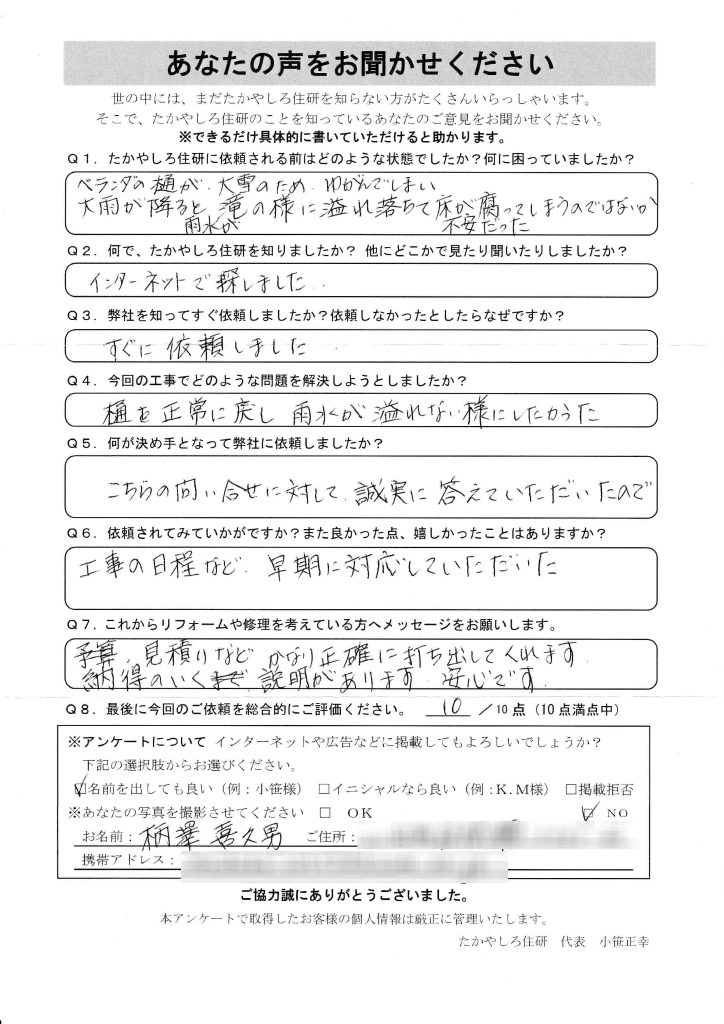 あなたの声をお聞かせください
世の中には、まだたかやしろ住研を知らない方がたくさんいらっしゃいます。
そこで、たかやしろ住研のことを知っているあなたのご意見をお聞かせください。
※できるだけ具体的に書いていただけると助かります。
Q1．たかやしろ住研に依頼される前はどのような状態でしたか？何に困っていましたか？
ベランダの樋が、大雪のため、ゆがんでしまい
大雨が降ると 滝の様に溢れ落ちて床が腐ってしまうのではないか
雨水が 不安だった
Q2．何で、たかやしろ住研を知りましたか？ 他にどこかで見たり聞いたりしましたか？
インターネットで探しました．
Q3．弊社を知ってすぐ依頼しましたか？依頼しなかったとしたらなぜですか？
すぐに 依頼しました
Q4．今回の工事でどのような問題を解決しようとしましたか？
樋を正常に戻し 雨水が溢れない様にしたかった
Q5．何が決め手となって弊社に依頼しましたか？
こちらの問い合せに対して、誠実に答えていただいたので
Q6．依頼されてみていかがですか？また良かった点、嬉しかったことはありますか？
工事の日程など、早期に対応していただいた
Q7．これからリフォームや修理を考えている方へメッセージをお願いします。
予算 見積りなど かなり正確に打ち出してくれます
納得のいくまで、説明があります 安心です
Q8．最後に今回のご依頼を総合的にご評価ください。 10 ／10点（10点満点中）
※アンケートについて インターネットや広告などに掲載してもよろしいでしょうか？
下記の選択肢からお選びください。
☑名前を出しても良い（例：小笹様） □イニシャルなら良い（例：K.M様） □掲載拒否
※あなたの写真を撮影させてください □ OK ☑ NO
お名前： 柄澤 喜久男 ご住所：
携帯アドレス：
ご協力誠にありがとうございました。
本アンケートで取得したお客様の個人情報は厳正に管理いたします。
たかやしろ住研 代表 小笹正幸